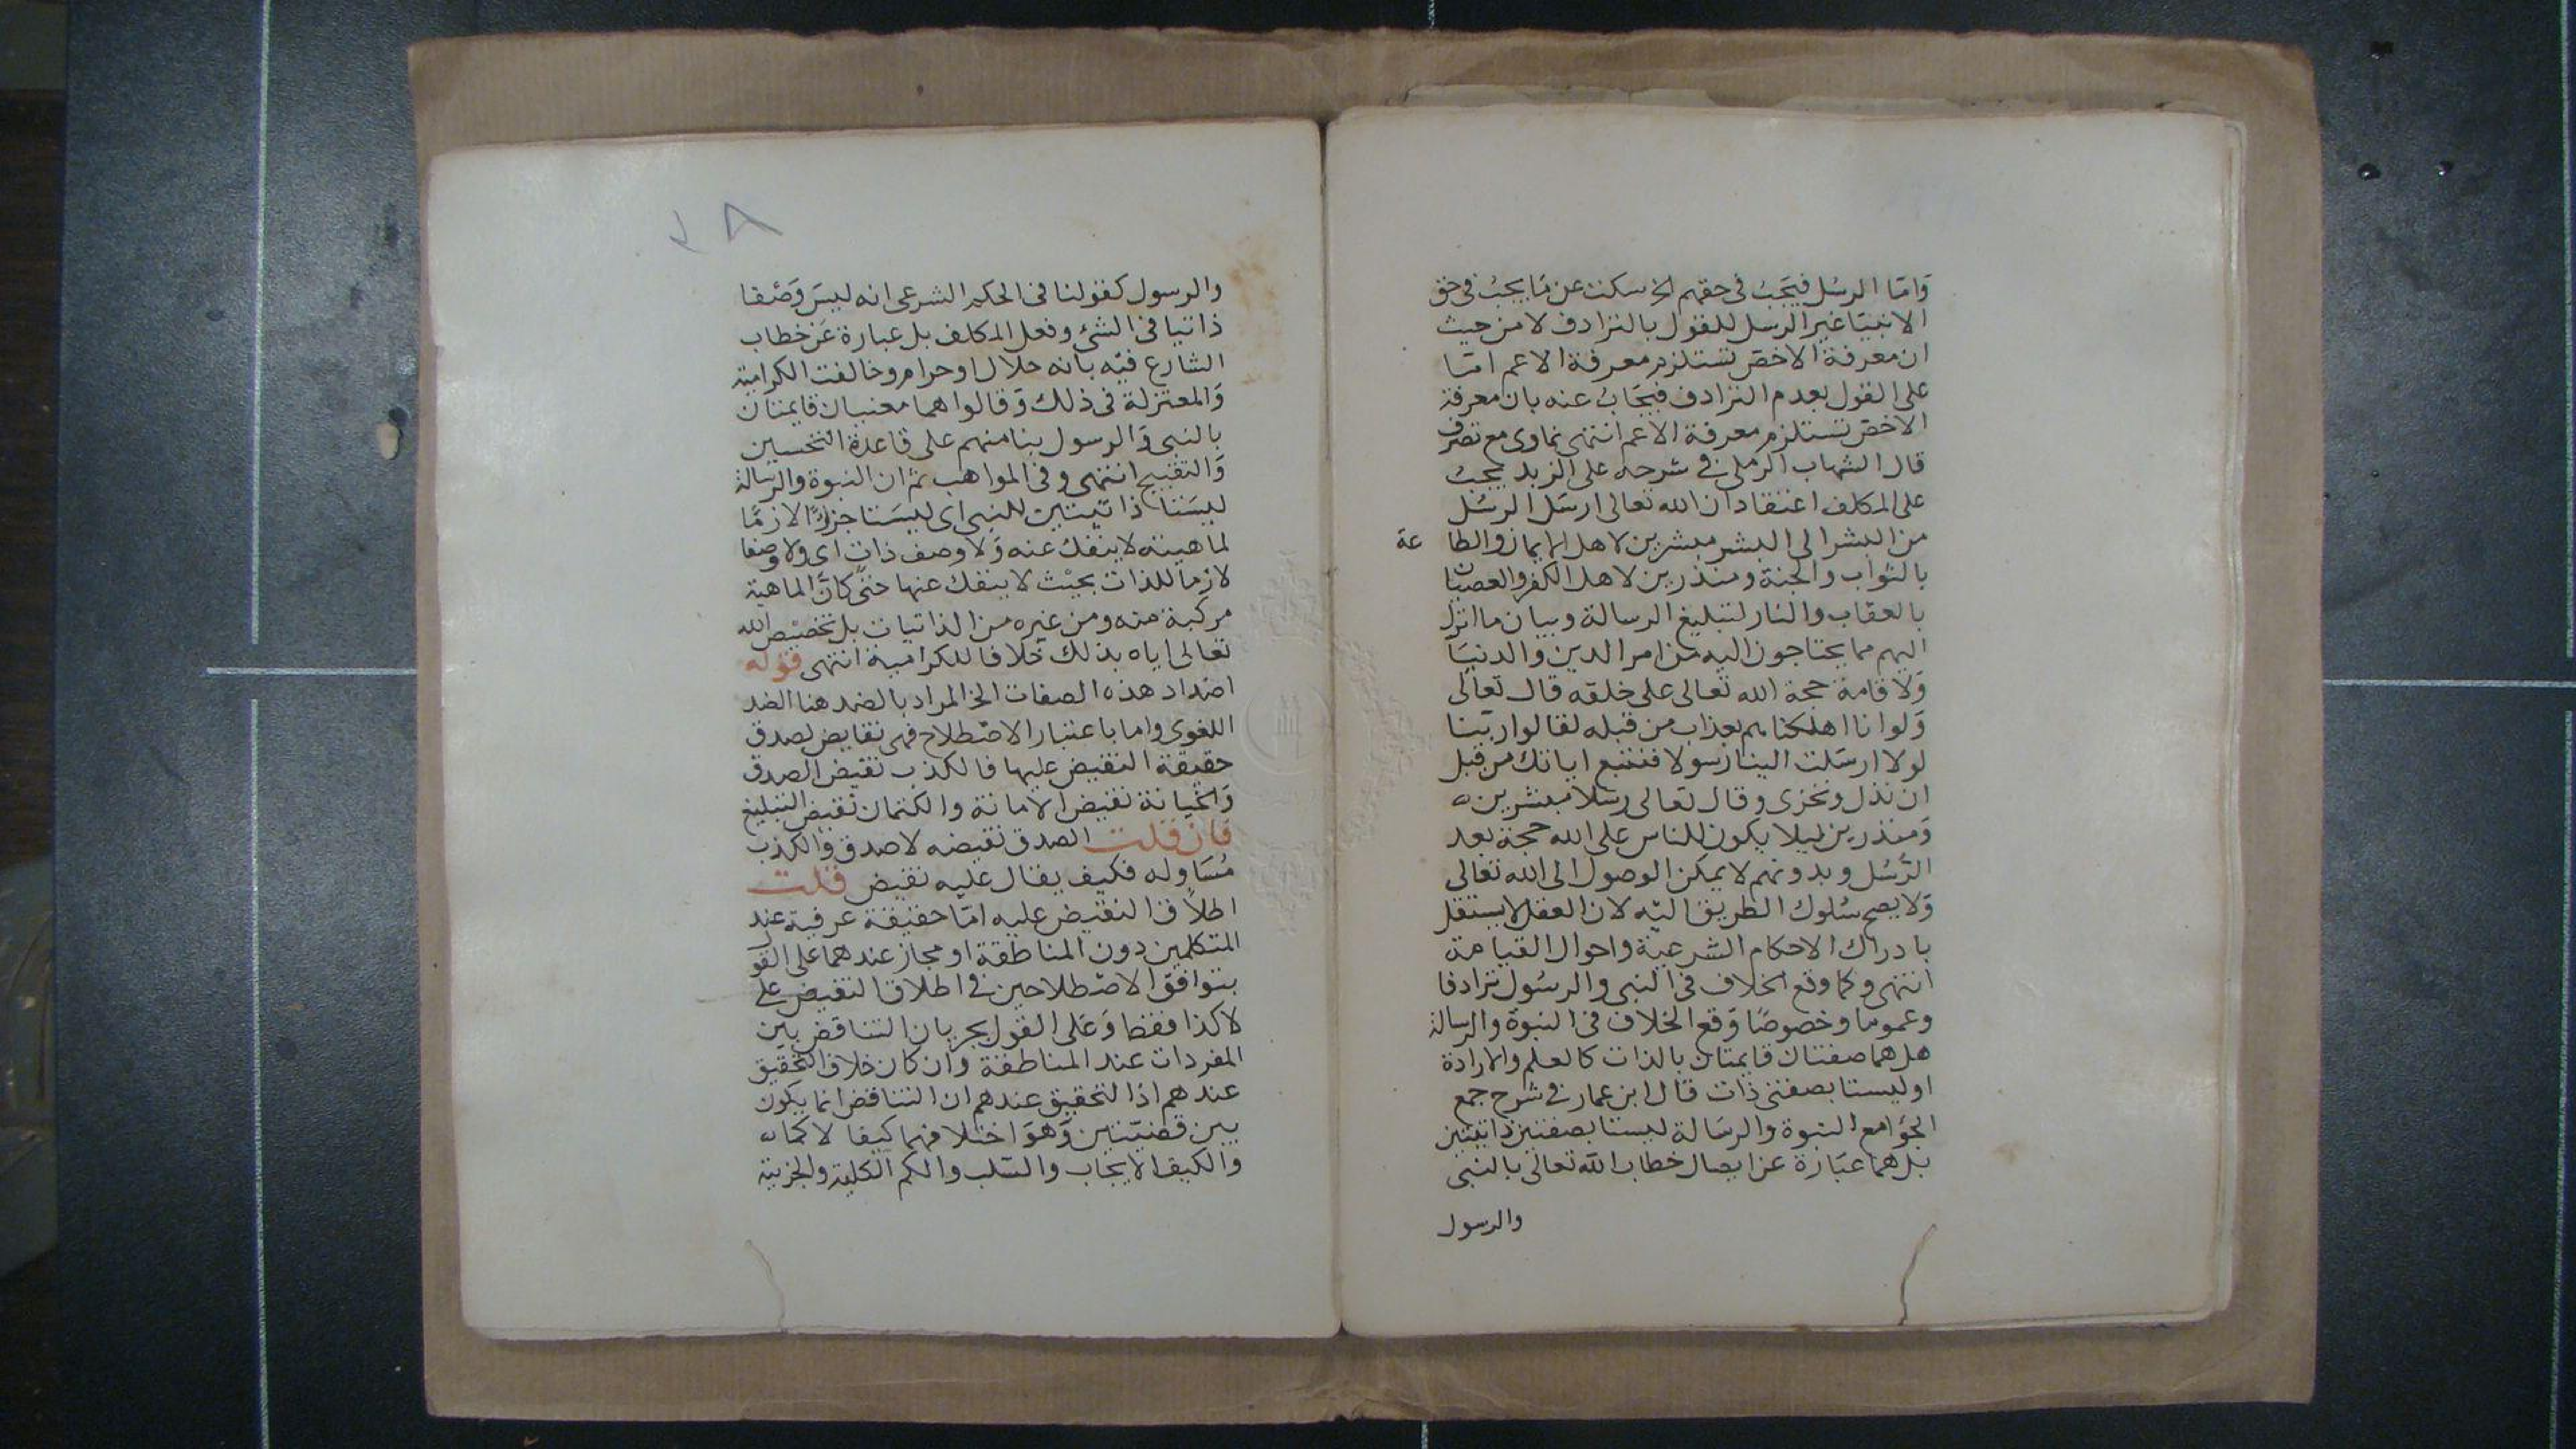 وَامّا الرسُل فيَجَبُ فى حقهم الخ سكت عن مَا يجبُ فى حق
الانبيا غير الرسل للقول بالترادف لا من حيث
ان معرفة الاخصّ تستلزم معرفة الاعم امّا
على القول بعدم الترادف فيجَابُ عنه بان معرفة
الاخصّ تستلزم معرفة الاعم انتهى نماوى مع تصرف
قال الشهاب الرملى فى شرحه على الزبد يجبُ
على المكلف اعتقاد ان الله تعالى ارسَل الرسُل
من البشر الى البشر مبشرين لاهل الايمان والطا عة
بالثواب والجنة ومنذرين لاهل الكفر والعصيان
بالعقاب والنار لتبليغ الرسالة وبيان ما انزل
اليهم مما يحتاجون اليه من امر الدين والدنيَا
وَلاقامة حجة الله تعالى على خلقه قال تعالى
وَلو انا اهلكناهم بعذاب من قبله لقالوا ربّنا
لولا ارسَلت الينا رسولا فنتبع اياتك من قبل
ان نذل ونخزى وقال تعالى رسُلا مبشرين
وَمنذرين ليلا يكون للناس على الله حجة بعد
الرّسُل وبدونهم لا يمكن الوصول الى الله تعالى
وَلا يصح سُلوك الطريق اليْه لان العقل لا يستقل
بادراك الاحكام الشرعيّة واحوال القيامة
انتهى وكما وقع الخلاف فى النبى والرسُول ترادفا
وعموما وخصوصًا وَقع الخلاف فى النبوة والرسالة
هل هما صفتان قايمتان بالذات كالعلم والارادة
او ليستا بصفتى ذات قال ابن عمار فى شرح جمع
الجوَامع النبوة والرسَالة ليستا بصفتين ذاتيتين
بل هما عبَارة عن ايصال خطاب الله تعالى بالنبى
والرسول
٢٨
والرسول كقولنا فى الحكم الشرعى انه ليسَ وَصْفا
ذاتيا فى الشئ وفعل المكلف بل عبارة عَن خطاب
الشارع فيْه بانه حلال او حرام وخالفت الكرامية
وَالمعتزلة فى ذلك وَقالوا هما معنيان قايمتان
بالنبى وَالرسول بنا منهم على قاعدة التحسين
وَالتقبيح انتهى وفى المواهب ثم ان النبوة والرسالة
ليسَتا ذاتيتين للنبى اى ليسَتا جزءًا لازمًا
لماهيته لا ينفك عنه وَلا وصف ذات اى ولا وصفا
لازما للذات بحيْث لا ينفك عنها حتى كانّ الماهية
مركبة منه ومن غيره من الذاتيات بل تخصيْص الله
تعالى اياه بذلك خلافا للكرامية انتهى قوله
اضداد هذه الصفات الخ المراد بالضد هنا الضد
اللغوى واما باعتبار الاصْطلاح فهى نقايض لصدق
حقيقة النقيض عليها فالكذب نقيض الصدق
وَالخيانة نقيض الامانة والكتمان نقيض التبليغ
فان قلت الصدق نقيضه لا صدق وَالكذب
مُسَاو له فكيف يقال عليه نقيض قلت
اطلاق النقيض عليه امّا حقيقة عرفية عند
المتكلمين دون المناطقة او مجاز عندهما على القو
بتوافق الاصْطلاحين فى اطلاق النقيض على
لا كذا فقط وَعَلى القول بجريان التناقض بين
المفردات عند المناطقة وان كان خلاف التحقيق
عندهم اذ التحقيق عندهم ان التناقض انما يكون
بين قضيّتين وَهوَ اختلافهما كيفا لا كما
والكيف الايجاب والسّلب والكم الكلية والجزيية